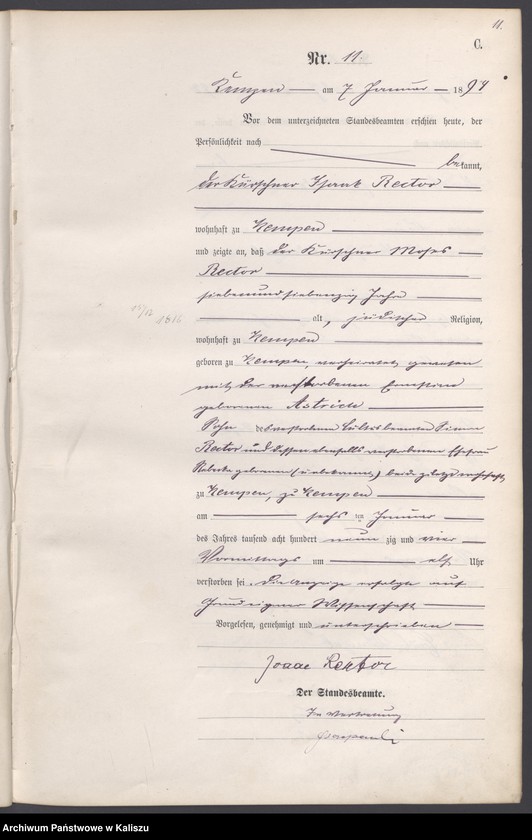 11.
C.
Nr. 11
Kempen am 7 Januar 1894
Vor dem unterzeichneten Standesbeamten erschien heute, der
Persönlichkeit nach
bekannt,
der Kürschner Isaak Rector
wohnhaft zu Kempen
und zeigte an, daß der Kürschner Moses
Rector
siebenundsiebenzig Jahre
alt, jüdischer Religion,
1816
wohnhaft zu Kempen
geboren zu Kempen, verheiratet gewesen
mit der verstorbenen Ernestine
geborenen Astrich
Sohn des verstorbenen Simon
Rector und dessen ebenfalls verstorbenen Ehefrau
geborenen (unbekannt) beide zuletzt wohnhaft
zu Kempen, zu Kempen
am sechsten Januar
des Jahres tausend acht hundert neunzig und vier
Vormittags um elf Uhr
verstorben sei. Die Anzeige erfolgte auf
Grund eigener Wissenschaft
Vorgelesen, genehmigt und unterschrieben
Isaac Rector
Der Standesbeamte.
In Vertretung
Archiwum Państwowe w Kaliszu